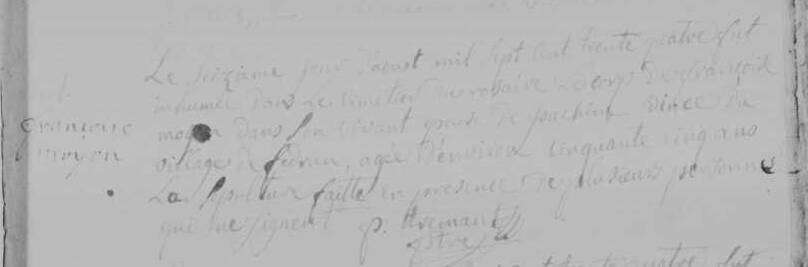 Le seizième jour d'aoust mil sept cent trente quatre fut
inhumée dans le cimetière le corps de françoise
moyon dans son vivant épouse de joachim vince du
village de fedrun, agée d'environ cinquante cinq ans
La sepulture faitte en presence de plusieurs personnes
qui ne signent p.
françoise
moyon